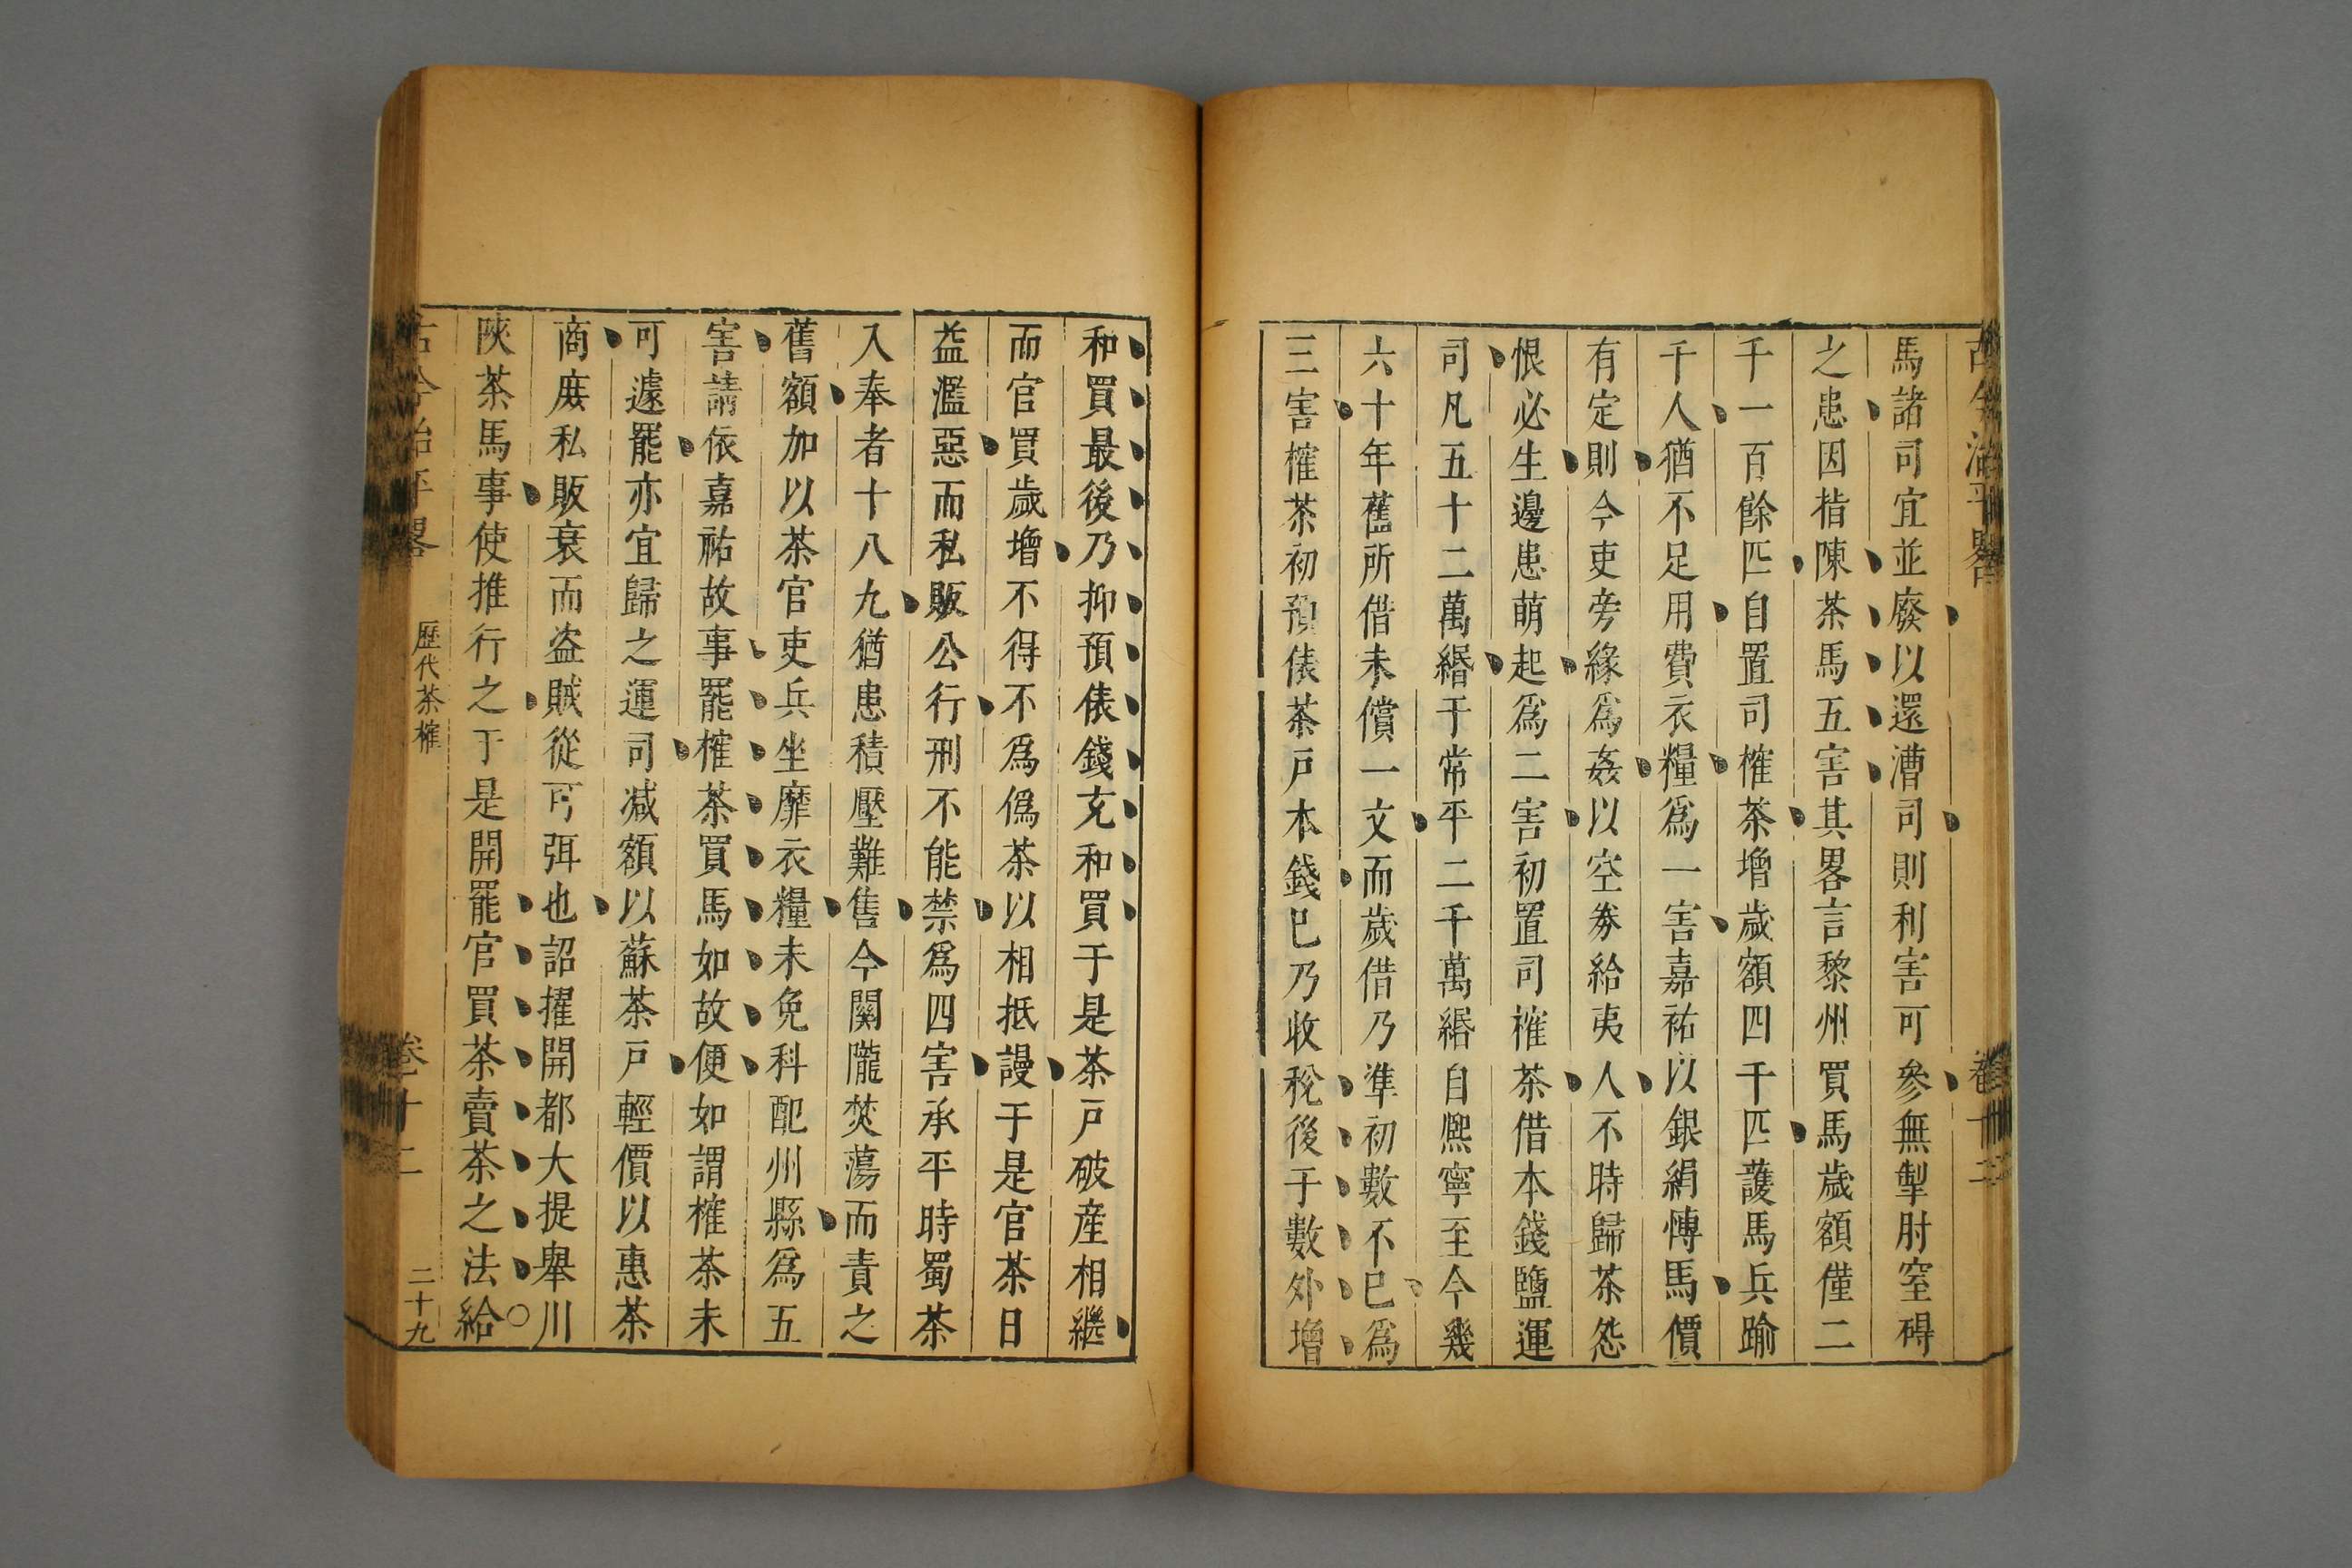 古今治平畧
卷十二
馬諸司宜並廢以還漕司則利害可參無掣肘窒碍
之患因指陳茶馬五害其畧言黎州買馬歲額僅二
千一百餘匹自置司榷茶增歲額四千匹護馬兵踰
千人猶不足用費衣糧爲一害嘉祐以銀絹愽馬價
有定則今吏旁緣爲姦以空券給夷人不時歸茶怨
恨必生邊患萌起爲二害初置司榷茶借本錢鹽運
司凡五十二萬緡于常平二千萬緡自熈寧至今幾
六十年舊所借未償一文而歲借乃準初數不巳爲
三害榷茶初預俵茶戸本錢巳乃收稅後于數外增
和買最後乃抑預俵錢充和買于是茶戸破産相繼
而官買歲增不得不爲僞茶以相抵謾于是官茶日
益濫惡而私販公行刑不能禁爲四害承平時蜀茶
入奉者十八九猶患積壓難售今關隴焚蕩而責之
舊額加以茶官吏兵坐靡衣糧未免科配州縣爲五
害請依嘉祐故事罷榷茶買馬如故便如謂榷茶未
可遽罷亦宜歸之運司减額以蘇茶戸輕價以惠茶
商庶私販衰而盜賊從可弭也詔擢開都大提舉川
陜茶馬事使推行之于是開罷官買茶賣茶之法給
古今治平畧
歷代茶榷
卷十二
二十九